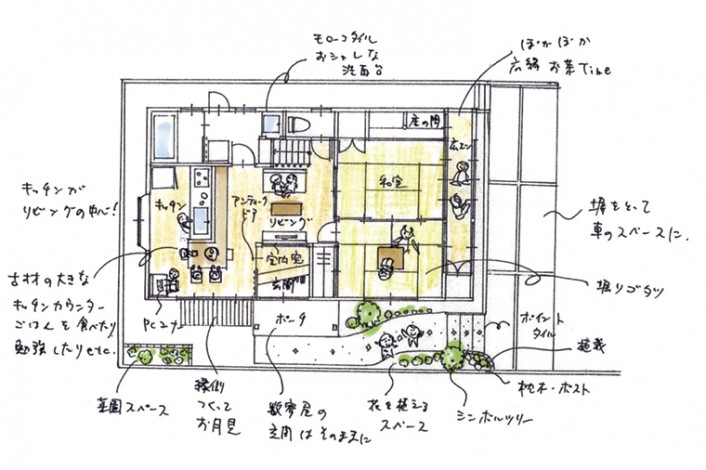 モローコタイル
おシャレな
洗面台
ぽかぽか
広縁 お茶Time
床の間
広エン
和室
キッチンが
リビングの中心!
キッチン
アンティーク
ドア
リビング
室内窓
玄関
塀をとって
車のスペースに.
古材の大きな
キッチンカウンター
ごはんを食べたり
勉強したりetc.
PCコーナー
ポーチ
掘りゴタツ
ポイント
タイル
植栽
枕木・ポスト
シンボルツリー
花を植える
スペース
数寄屋の
玄関はそのままに
縁側
つくって
お月見
菜園スペース